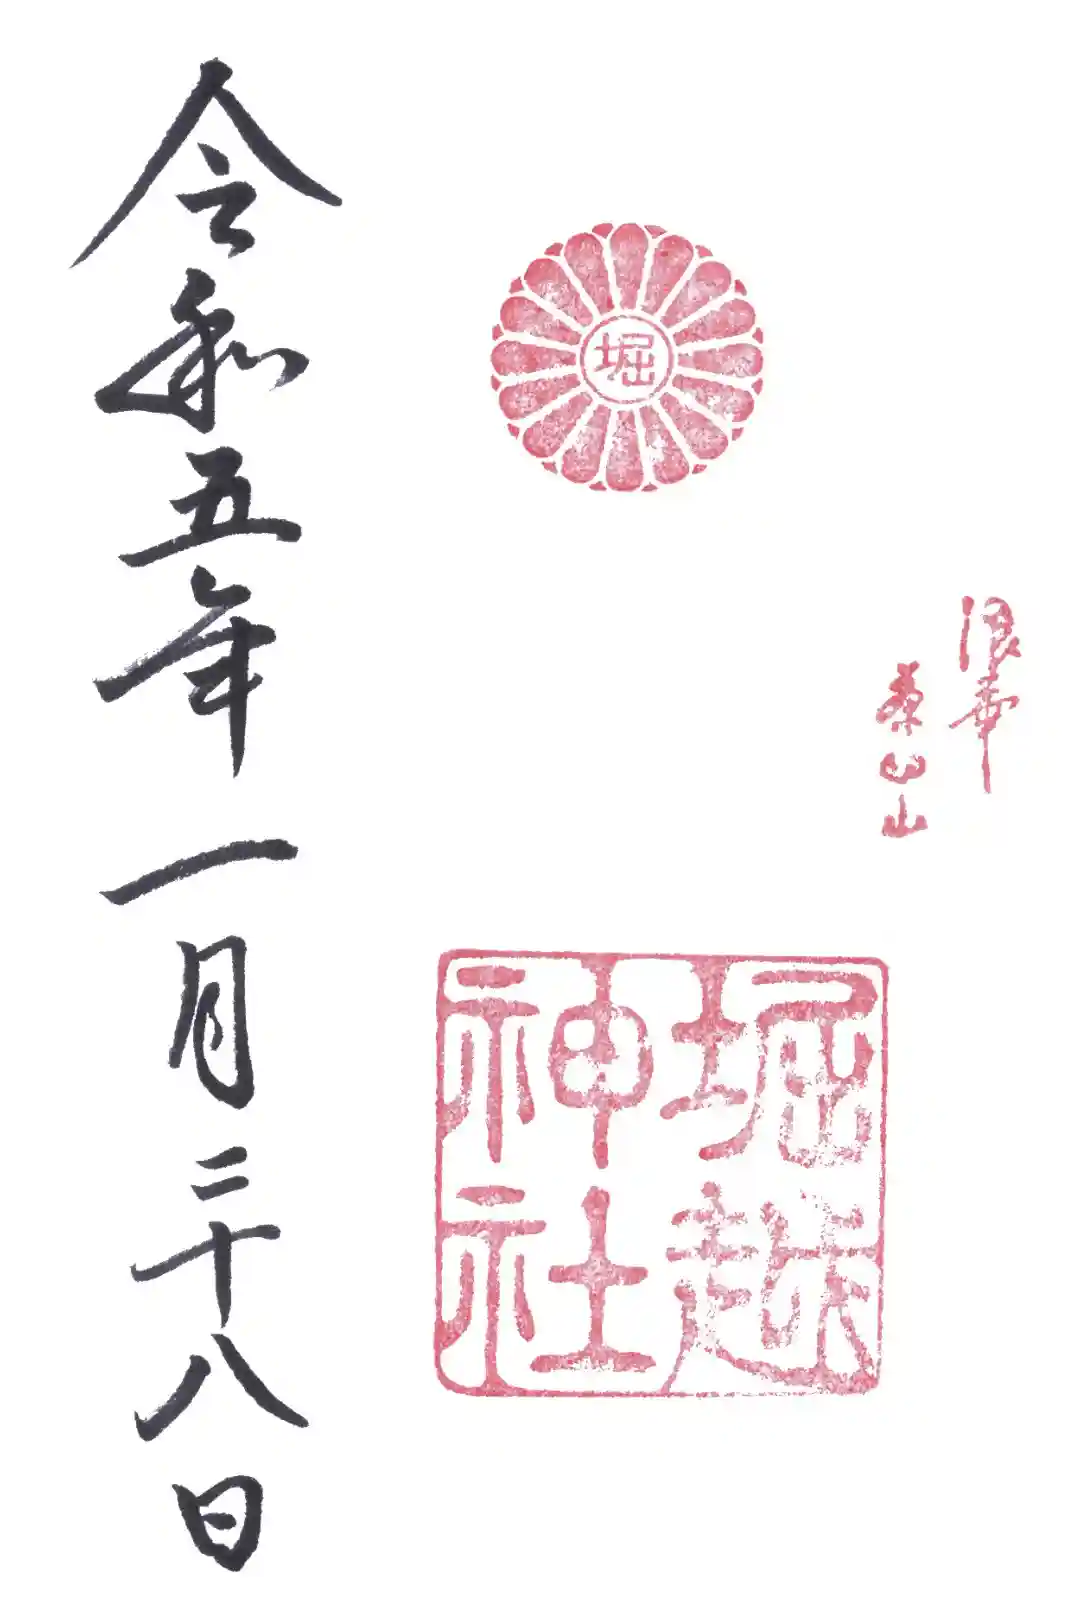 浪華
茶臼山
堀
堀越
神社
令和五年一月二十八日